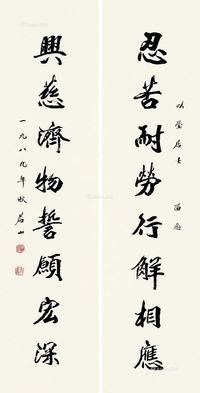 忍苦耐勞行解相應
以螢居士 留念
興慈濟物誓願宏深
一九八九年秋若山